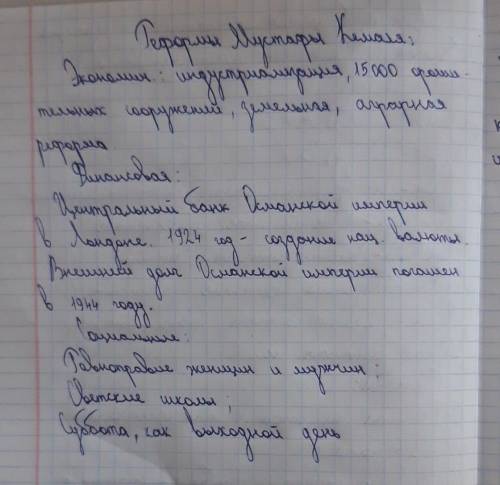 Реформы Мустафы Кемаля:
Экономич.: индустриализация, 15000 ороси-
тельных сооружений, земельная, аграрная
реформа
Финансовая:
Центральный банк Османской империи
в Лондоне. 1924 год - создание нац. валюты.
Внешний долг Османской империи погашен
в 1944 году.
Социальные:
Равноправие женщин и мужчин;
Светские школы;
Суббота, как выходной день